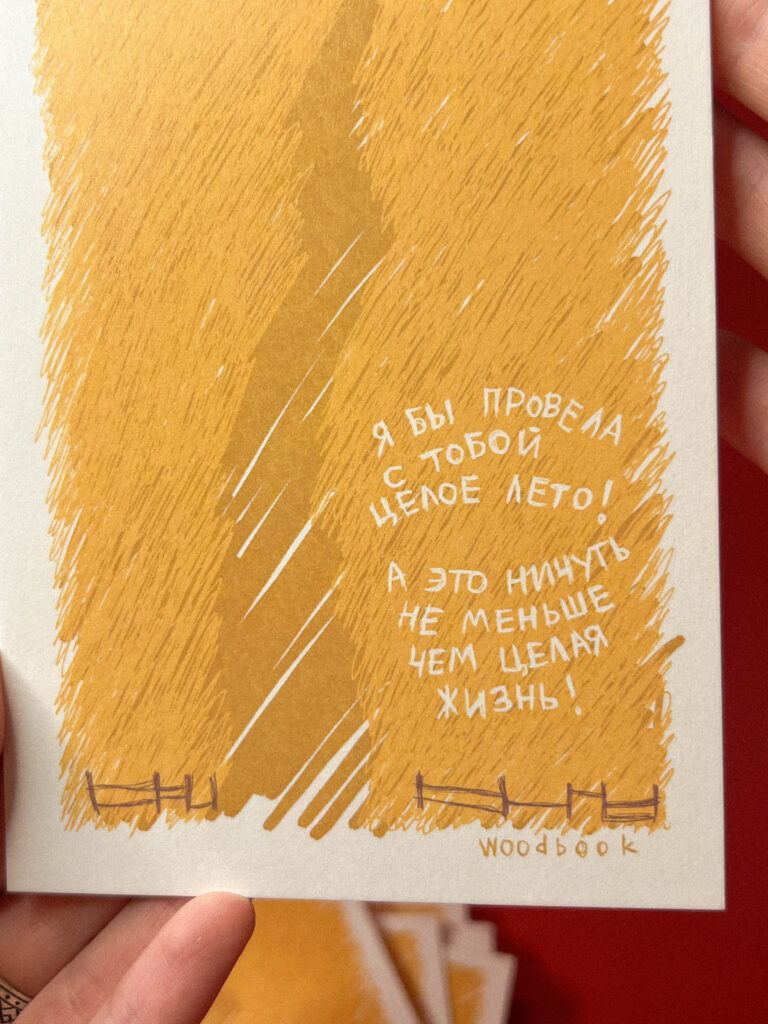 Я БЫ ПРОВЕЛА
С ТОБОЙ
ЦЕЛОЕ ЛЕТО!
А ЭТО НИЧУТЬ
НЕ МЕНЬШЕ
ЧЕМ ЦЕЛАЯ
ЖИЗНЬ!
woodbook